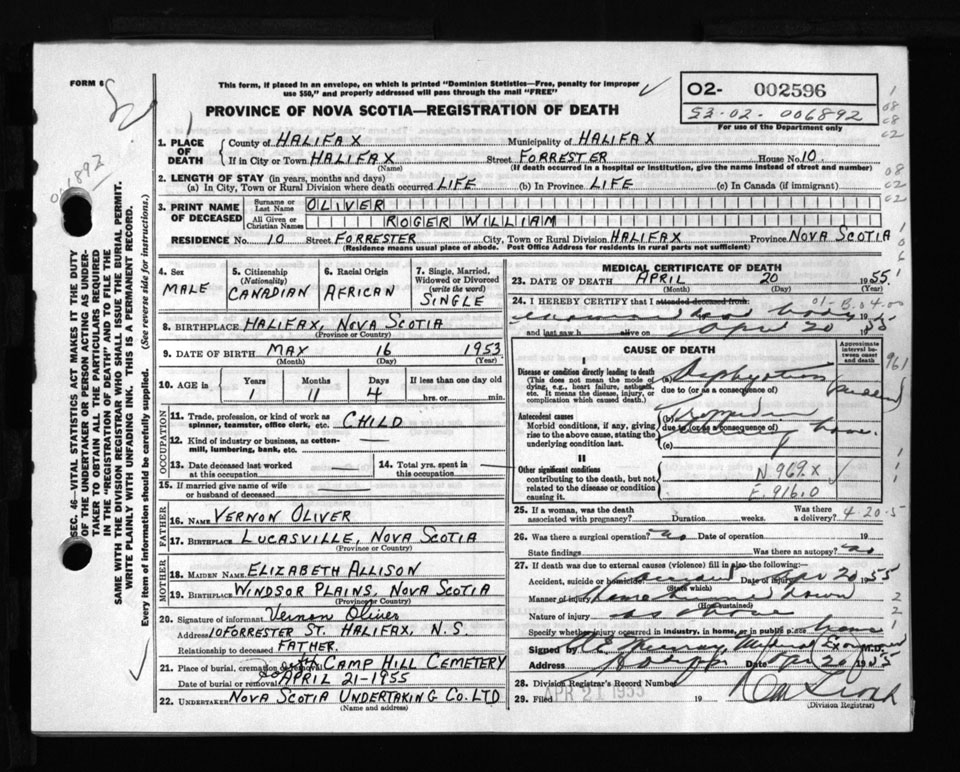 FORM 6
This form, if placed in an envelope, on which is printed "Dominion Statistics—Free, penalty for improper
use $50," and properly addressed will pass through the mail "FREE"
PROVINCE OF NOVA SCOTIA—REGISTRATION OF DEATH
O2- 002596
53-02-006892
For use of the Department only
1. PLACE OF DEATH
County of HALIFAX Municipality of HALIFAX
If in City or Town HALIFAX Street FORRESTER House No. 10.
(Name) (If death occurred in a hospital or institution, give the name instead of street and number)
2. LENGTH OF STAY (in years, months and days)
(a) In City, Town or Rural Division where death occurred LIFE (b) In Province LIFE (c) In Canada (if immigrant)
3. PRINT NAME OF DECEASED
Surname or Last Name OLIVER
All Given or Christian Names ROGER WILLIAM
RESIDENCE No. 10 Street FORRESTER City, Town or Rural Division HALIFAX Province NOVA SCOTIA
(Residence means usual place of abode. Post Office Address for residents in rural parts not sufficient)
4. Sex MALE
5. Citizenship (Nationality) CANADIAN
6. Racial Origin AFRICAN
7. Single, Married, Widowed or Divorced (write the word) SINGLE
8. BIRTHPLACE HALIFAX, NOVA SCOTIA
(Province or Country)
9. DATE OF BIRTH MAY 16 1953
(Month) (Day) (Year)
10. AGE in Years Months Days If less than one day old
1 11 4 hrs. or min.
OCCUPATION
11. Trade, profession, or kind of work as spinner, teamster, office clerk, etc. CHILD
12. Kind of industry or business, as cotton-mill, lumbering, bank, etc. —
13. Date deceased last worked at this occupation — 14. Total yrs. spent in this occupation —
15. If married give name of wife or husband of deceased —
FATHER
16. NAME VERNON OLIVER
17. BIRTHPLACE LUCASVILLE, NOVA SCOTIA
(Province or Country)
MOTHER
18. MAIDEN NAME ELIZABETH ALLISON
19. BIRTHPLACE WINDSOR PLAINS, NOVA SCOTIA
(Province or Country)
20. Signature of informant Vernon Oliver
Address 10 FORRESTER ST. HALIFAX, N.S.
Relationship to deceased FATHER.
21. Place of burial, cremation or removal CAMP HILL CEMETERY
Date of burial or removal APRIL 21-1955
22. UNDERTAKER NOVA SCOTIA UNDERTAKING CO. LTD
(Name and address)
MEDICAL CERTIFICATE OF DEATH
23. DATE OF DEATH APRIL 20 1955.
(Month) (Day) (Year)
24. I HEREBY CERTIFY that I attended deceased from:
body 19
and last saw h alive on April 20 1955
CAUSE OF DEATH
Approximate interval between onset and death
I
Disease or condition directly leading to death
(This does not mean the mode of dying, e.g., heart failure, asthenia, etc. It means the disease, injury, or complication which caused death.)
(a) Asphyxiation
due to (or as a consequence of)
Antecedent causes
Morbid conditions, if any, giving rise to the above cause, stating the underlying condition last.
(b)
due to (or as a consequence of)
(c)
II
Other significant conditions
contributing to the death, but not related to the disease or condition causing it.
N 969.X
E. 916.0
25. If a woman, was the death associated with pregnancy? Duration weeks. Was there a delivery? 4-20-5
26. Was there a surgical operation? no Date of operation 19
State findings Was there an autopsy? no
27. If death was due to external causes (violence) fill in also the following:—
Accident, suicide or homicide Date of injury Apr 20 1955
(State which)
Manner of injury Home burned down
(How sustained)
Nature of injury as above
Specify whether injury occurred in industry, in home, or in public place home
Signed by M.D.
Address Date Apr 20 1955
28. Division Registrar's Record Number
29. Filed APR 21 1955 19
(Division Registrar)
SEC. 46—VITAL STATISTICS ACT MAKES IT THE DUTY
OF THE UNDERTAKER OR PERSON ACTING AS UNDER-
TAKER TO OBTAIN ALL THE PARTICULARS REQUIRED
IN THE "REGISTRATION OF DEATH" AND TO FILE THE
SAME WITH THE DIVISION REGISTRAR WHO SHALL ISSUE THE BURIAL PERMIT.
WRITE PLAINLY WITH UNFADING INK. THIS IS A PERMANENT RECORD.
Every item of information should be carefully supplied. (See reverse side for instructions.)